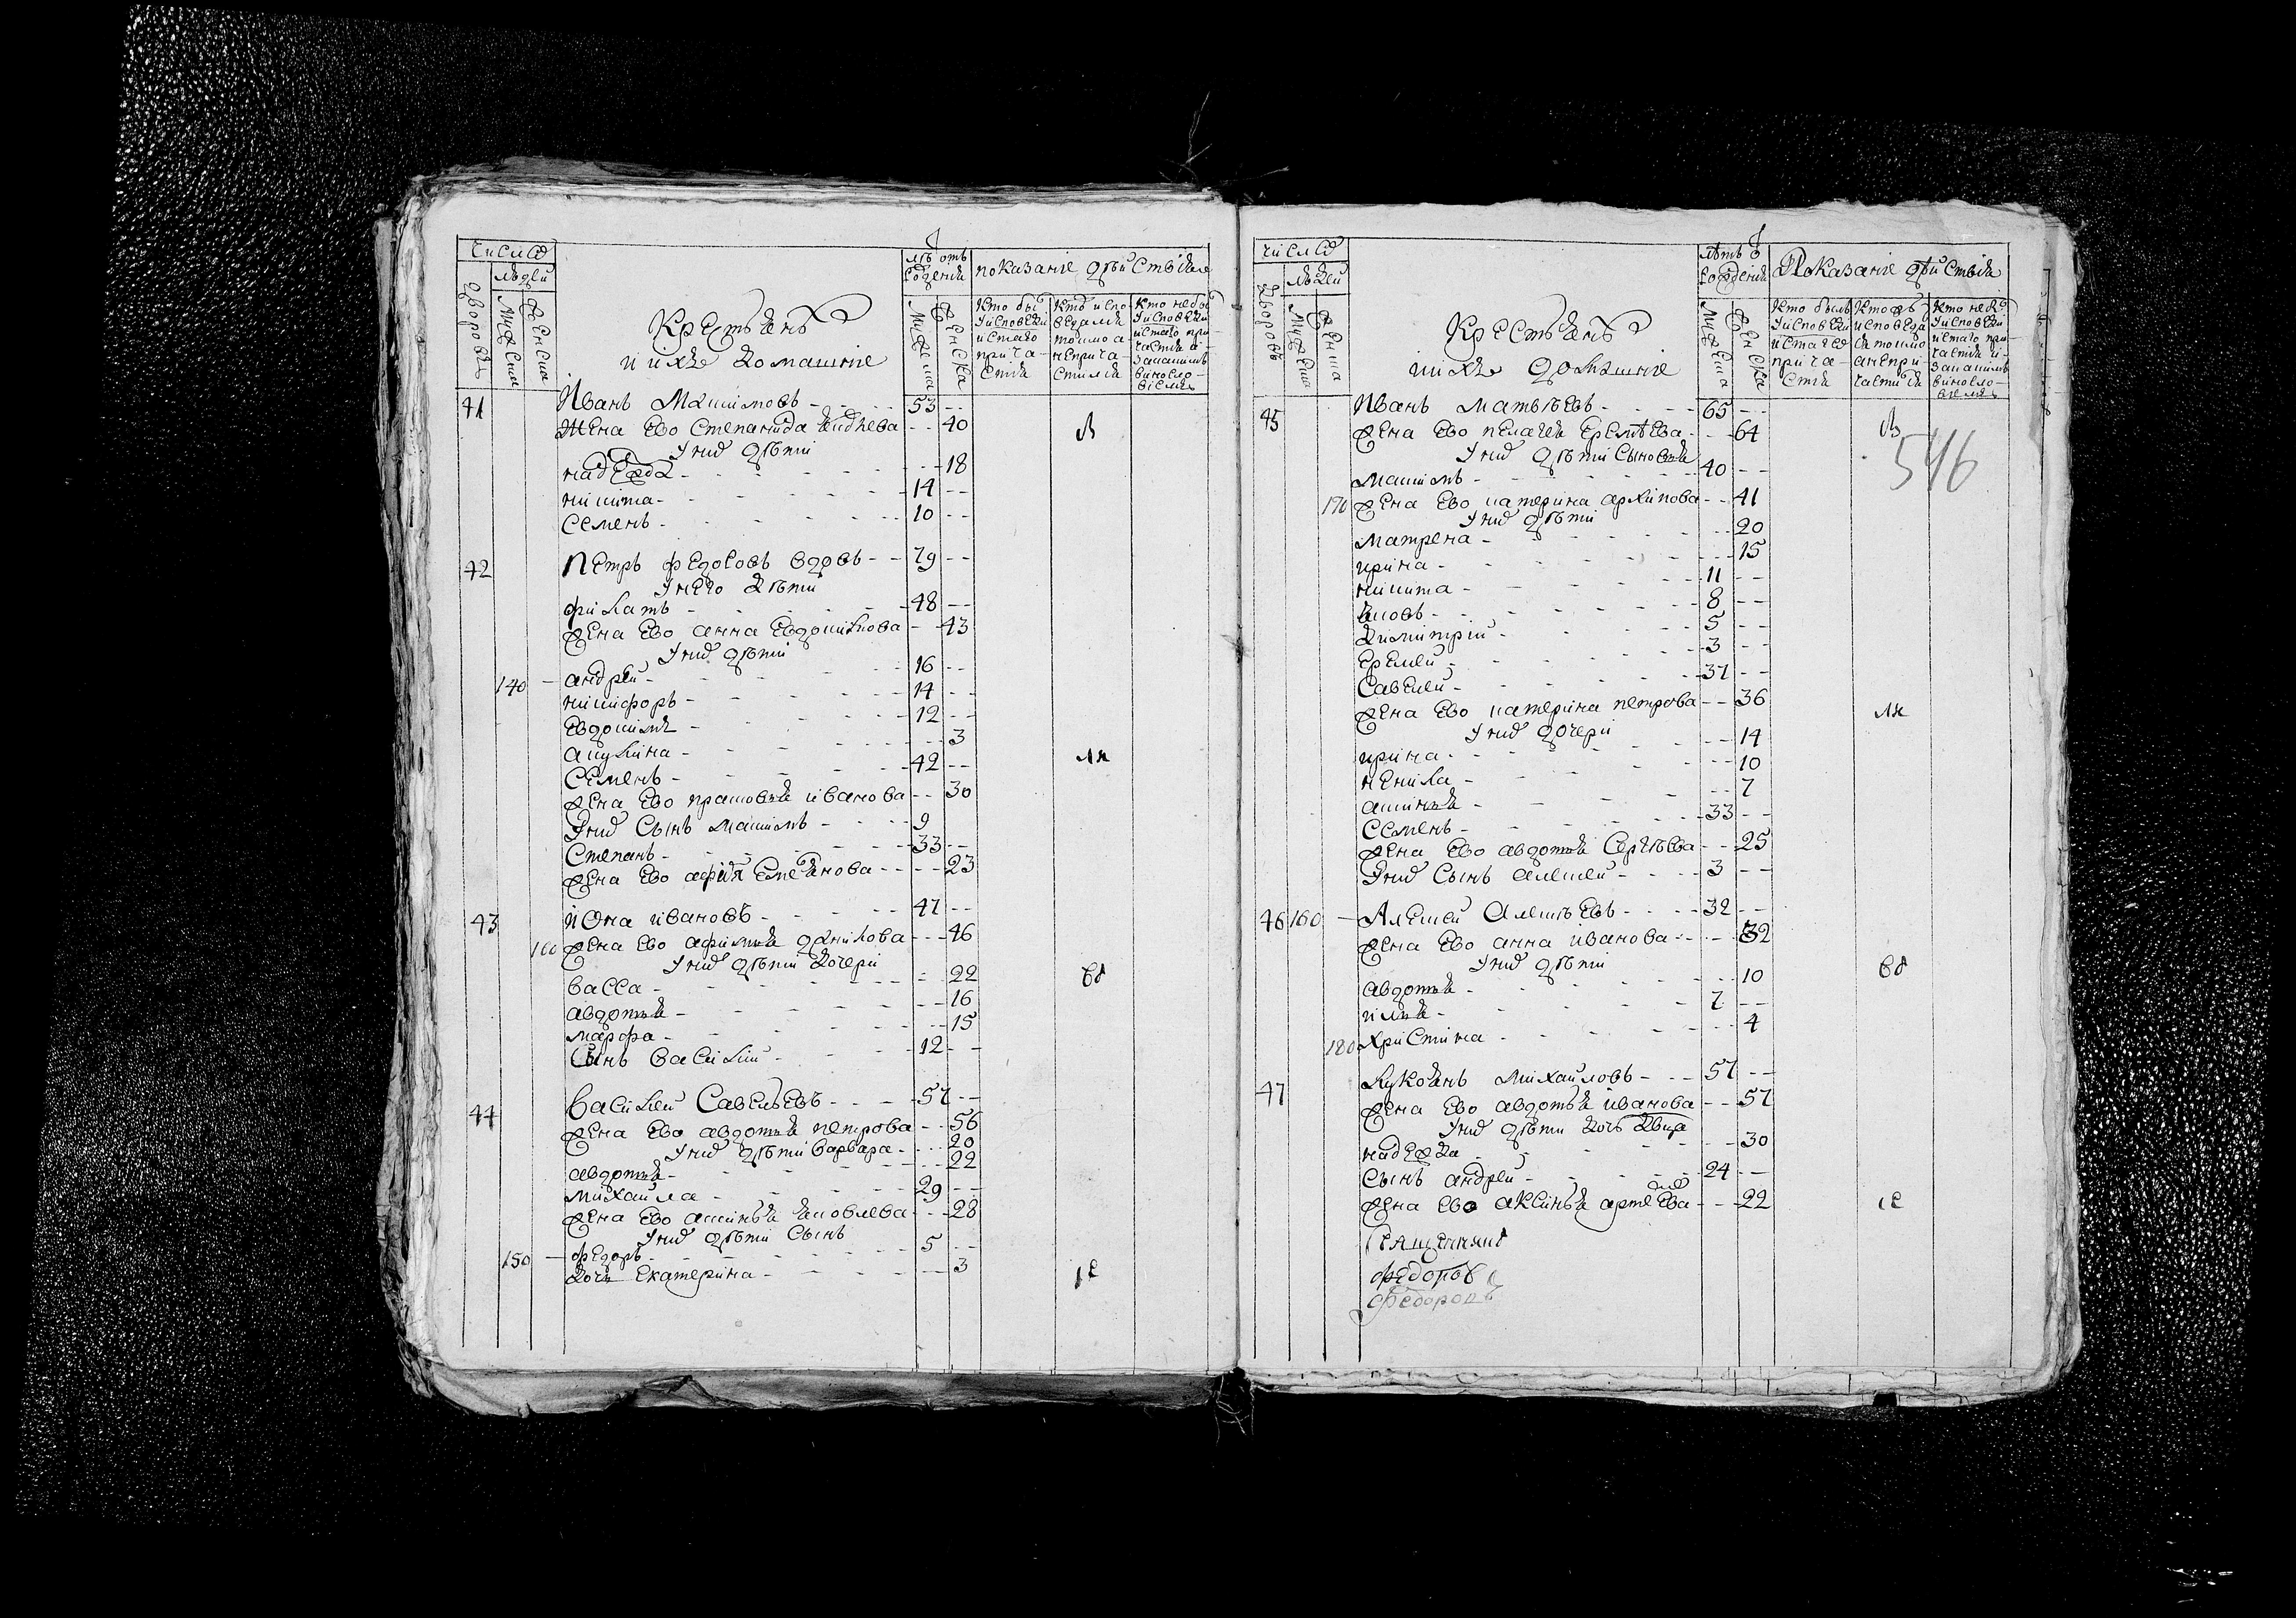 число
людей
дворовъ
мужеска
женска
Крестьянѣ
и ихъ домашніе
лѣтъ отъ
рожденія
мужеска
женска
показаніе дѣйствія
Кто былъ
у исповеди
и стаго
прича-
стія
Кто испо-
ведался
токмо а
не прича-
стился
Кто не былъ
у исповеди
и стаго при-
частія и
за какимъ
винослo-
віемъ
41 Иванъ Максимовъ - 53 --
Жена Ево Степанида - - 40
У нихъ дѣти
надежда - 18
никита - 14 --
Семенъ - 10 --
42 Петръ федосовъ вдовъ - - 79 --
У него дѣти
филатъ - 48 --
жена Ево анна Евдокимова - - 43
У нихъ дѣти
140 - андрей - 16 --
никифоръ - 14 --
Евдокимъ - 12 --
акулина - 3
Семенъ - 42 --
жена Ево прасковья иванова - - 30
У нихъ Сынъ максимъ - 9
Степанъ - 33 --
жена Ево - - 23
43 иона ивановъ - 47 --
160 жена Ево афимья данилова - - 46
У нихъ дѣти дочери
васса - 22
авдотья - 16
марфа - 15
Сынъ василии - 12 --
44 василеи Савельевъ - 57 --
жена Ево авдотья петрова - - 56
У нихъ дѣти варвара - 20
авдотья - 22
михаила - 29 --
жена Ево аксинья яковлева - - 28
У нихъ дѣти Сынъ
150 - федоръ - 5 --
дочь Екатерина - 3
число
людей
дворовъ
мужеска
женска
Крестьянѣ
и ихъ домашніе
лѣтъ ѿ
рожденія
мужеска
женска
Показаніе дѣйствія
Кто былъ
у исповеди
и стаго
прича-
стія
Кто
исповеда
ся токмо
а не при
частился
Кто не былъ
у исповеди
и стаго при-
частія и
за какимъ
винослo-
віемъ
546
45 Иванъ матвѣевъ - 65 --
жена Ево пелагея Еремѣева - - 64
У нихъ дѣти Сыновья
максимъ - 40 --
170 жена Ево катерина архипова - - 41
У нихъ дѣти
матрена - 20
ирина - 15
никита - 11 --
яковъ - 8 --
димитрий - 5 --
Еремей - 3 --
Савелей - 37 --
жена Ево катерина петрова - - 36
У нихъ дочери
ирина - 14
ненила - 10
аксинья - 7
Семенъ - 33 --
жена Ево авдотья Сергѣева - - 25
У нихъ Сынъ алексей - 3 --
46 160 - Алексей Алексѣевъ - 32 --
жена Ево анна иванова - - 32
У нихъ дѣти
авдотья - 10
илья - 7 --
180 христина - 4
47 Лукоянъ михайловъ - 57 --
жена Ево авдотья иванова - - 57
У нихъ дѣти дочь двица
надежда - 30
Сынъ андрей - 24 --
жена Ево аксинья артеева - - 22
федоров
федоровъ